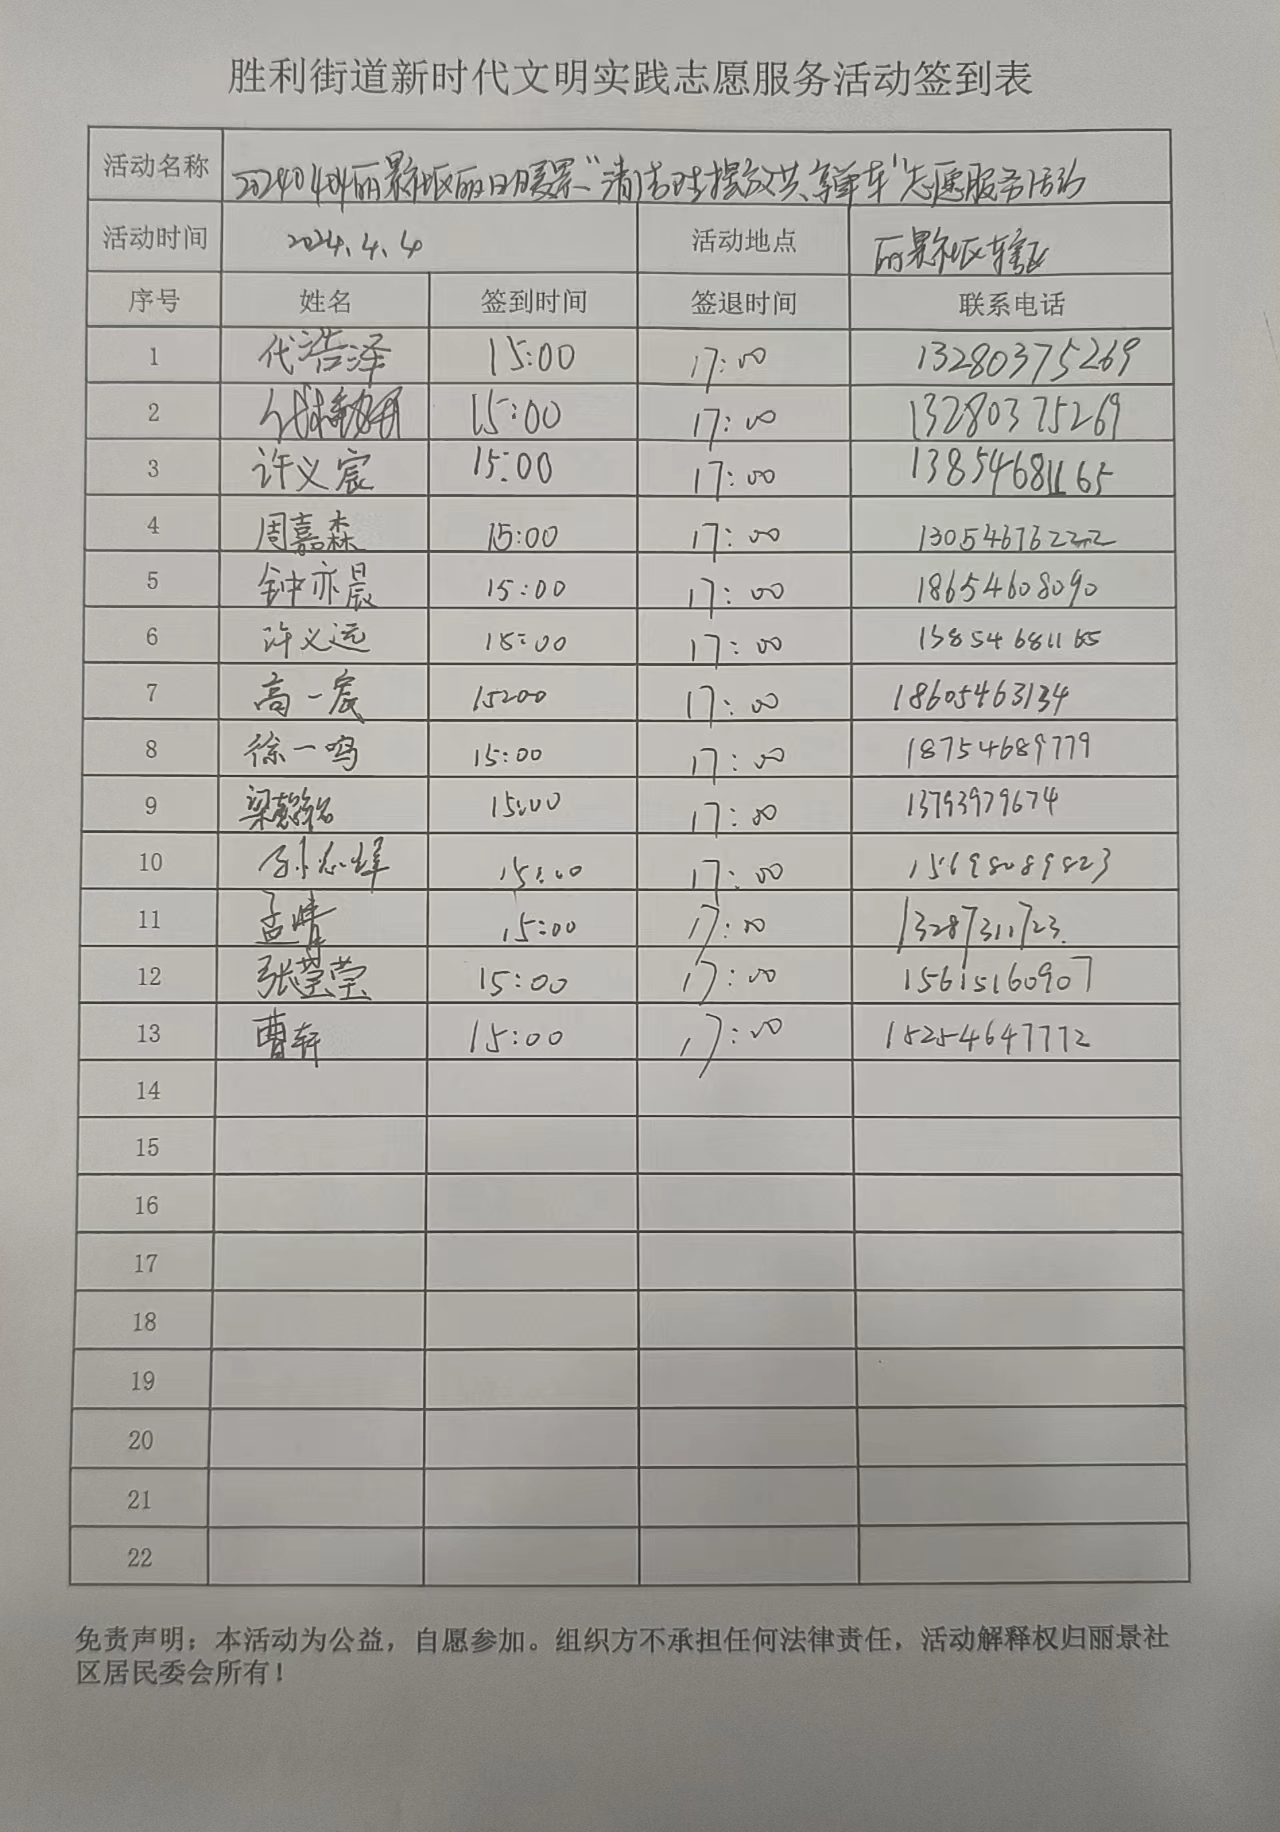 胜利街道新时代文明实践志愿服务活动签到表
活动名称 20240404丽景社区丽日暖景"清洁摆放共享单车"志愿服务活动
活动时间 2024.4.4 活动地点 丽景社区辖区
序号 姓名 签到时间 签退时间 联系电话
1 代浩泽 15:00 17:00 13280375269
2 15:00 17:00 13280375269
3 许义宸 15:00 17:00 13854681165
4 周嘉森 15:00 17:00 13054676222
5 钟亦晨 15:00 17:00 18654608090
6 许义远 15:00 17:00 13854681165
7 高一宸 15:00 17:00 18605463134
8 徐一鸣 15:00 17:00 18754689779
9 梁 15:00 17:00 13793979674
10 孙志峰 15:00 17:00 15698089823
11 孟婧 15:00 17:00 13287311723.
12 张莹莹 15:00 17:00 15615160907
13 曹轩 15:00 17:00 15254647772
14
15
16
17
18
19
20
21
22
免责声明：本活动为公益，自愿参加。组织方不承担任何法律责任，活动解释权归丽景社
区居民委会所有！